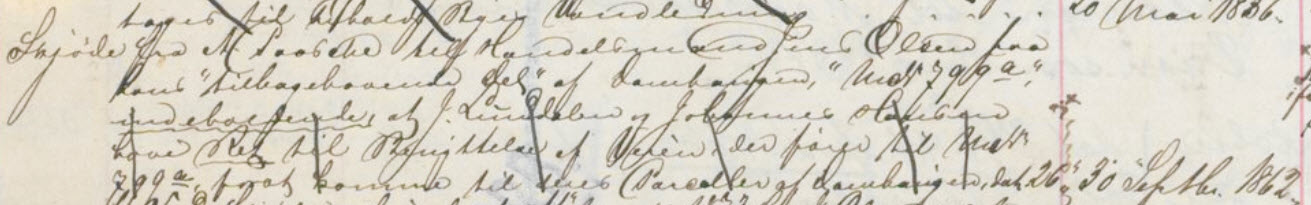 tages til Byens Vandledning . . . . 20 Mai 1856.
Skjöde fra A. Paasche til Handelsmand Jens Olsen paa
hans "tilbageblevende Del" af Damhaugen, "Mat № 799a",
indeholdende, at J. Lunddalen og Johannes Hansen
have Ret til Benyttelse af Veien, der fører til Mat №
799a, for at komme til deres Parceller af Damhaugen, dat. 26 30 Septbr. 1862.